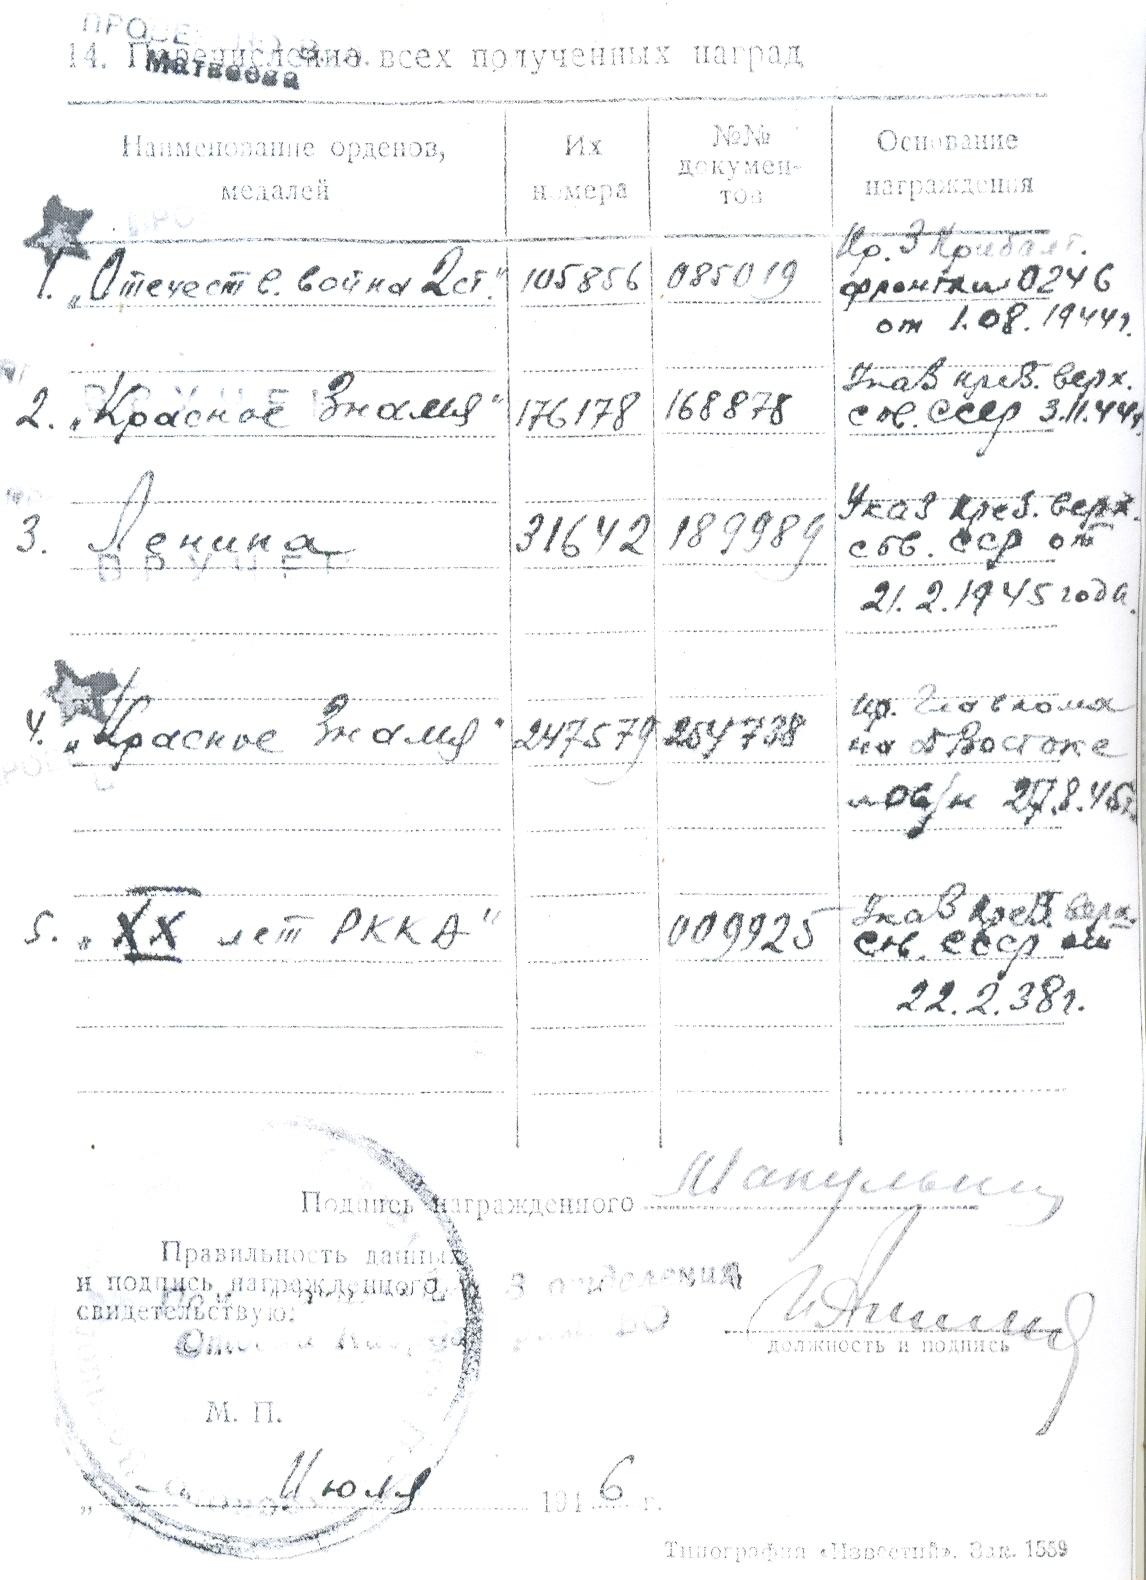 14. Перечисление всех полученных наград
Матвеева
Наименование орденов, медалей
Их номера
№№ докумен-
тов
Основание награждения
1. „Отечеств. война 2 ст.“ 105856 085019 Пр. 3 Прибалт.
фронта 0246
от 1.08.1944г.
2. „Красное Знамя“ 176178 168878 Указ през. верх.
сов. СССР 3.11.44г.
3. Ленина 31642 189989 Указ през. верх.
сов. ССР от
21.2.1945 года.
ВРУЧЕН
4. „Красное Знамя“ 247579 254738 пр. Главкома
на Д Востоке
№ 08/н 27.8.45г.
5. „XX лет РККА“ 009925 Указ През. верх.
Сов. СССР от
22.2.38г.
Подпись награжденного
Правильность данных
и подпись награжденного
свидетельствую:
отделения
должность и подпись
М. П.
„ Июля 1946 г.
Типография «Известий». Зак. 1559